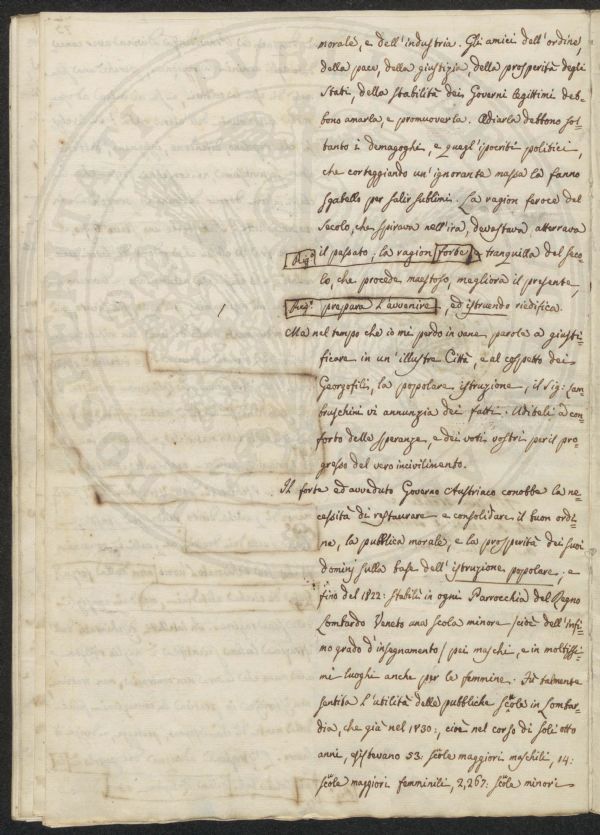 morale, e dell'industria. Gli amici dell'ordine,
della pace, della giustizia, della prosperità degli
Stati, della stabilità dei Governi legittimi deb-
bono amarla, e promuoverla. Odiarla debbono sol-
tanto i demagoghi, e quegl'ipocriti politici,
che corteggiando un'ignorante massa la fanno
sgabello per salir sublimi. La ragion feroce del
secolo, che spirava nell'ira, devastava, atterrava
il passato; la ragion forte e tranquilla del seco-
lo, che procede maestoso, migliora il presente,
prepara l'avvenire, ed istruendo riedifica.
Ma nel tempo che io mi perdo in vane parole a giusti-
ficare in un'illustre Città, e al cospetto dei
Georgofili, la popolare istruzione, il Sig: Lam-
bruschini vi annunzia dei fatti. Uditeli a con-
forto delle speranze, e dei voti vostri per il pro-
gresso del vero incivilimento.
Il forte ed avveduto Governo Austriaco conobbe la ne-
cessità di restaurare e consolidare il buon ordi-
ne, la pubblica morale, e la prosperità dei suoi
dominj sulla base dell'istruzione popolare; e
fino del 1822: stabilì in ogni Parrocchia del Regno
Lombardo Veneto una scola minore /cioè dell'infi-
mo grado d'insegnamento/ pei maschi, e in moltissi-
mi luoghi anche per le femmine. Fù talmente
sentita l'utilità delle pubbliche scuole in Lombar-
dia, che già nel 1830:, cioè nel corso di soli otto
anni, esistevano 53: scuole maggiori maschili, 14:
scuole maggiori femminili, 2,267: scuole minori